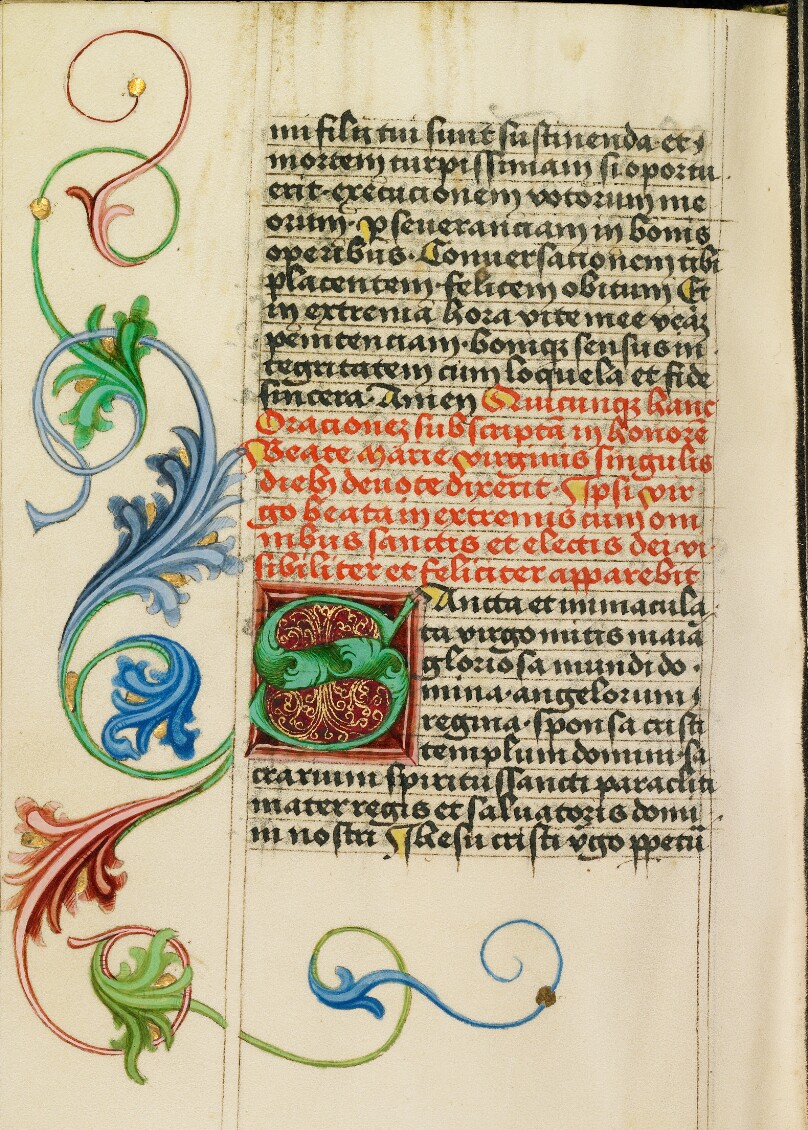 ini filii tui sunt sustinenda et
mortem turpissimam si oportu
erit. execucionem votorum me
orum. pseueranciam in bonis
operibus. Conuersacionem tibi
placentem. felicem obitum Et
in extrema hora vite mee veā
penitenciam. bonūqȝ sensus in
tegritatem cum loquela et fide
sincera. Amen Quicunqȝ hanc
Orationeȝ subscriptā in honorē
Beate Marie virginis singulis
diebȝ deuote dixerit. Ipsi vir
go beata in extremis cum om
nibus sanctis et electis dei vi
sibiliter et feliciter apparebit
SAncta et immacula
ta virgo mitis maria
gloriosa mundi do
mina. angelorum
regina. sponsa cristi
templum domini. sa
crarium spiritus sancti paracliti
mater regis et saluatoris domi
ni nostri Ihesu cristi vgo ppetu